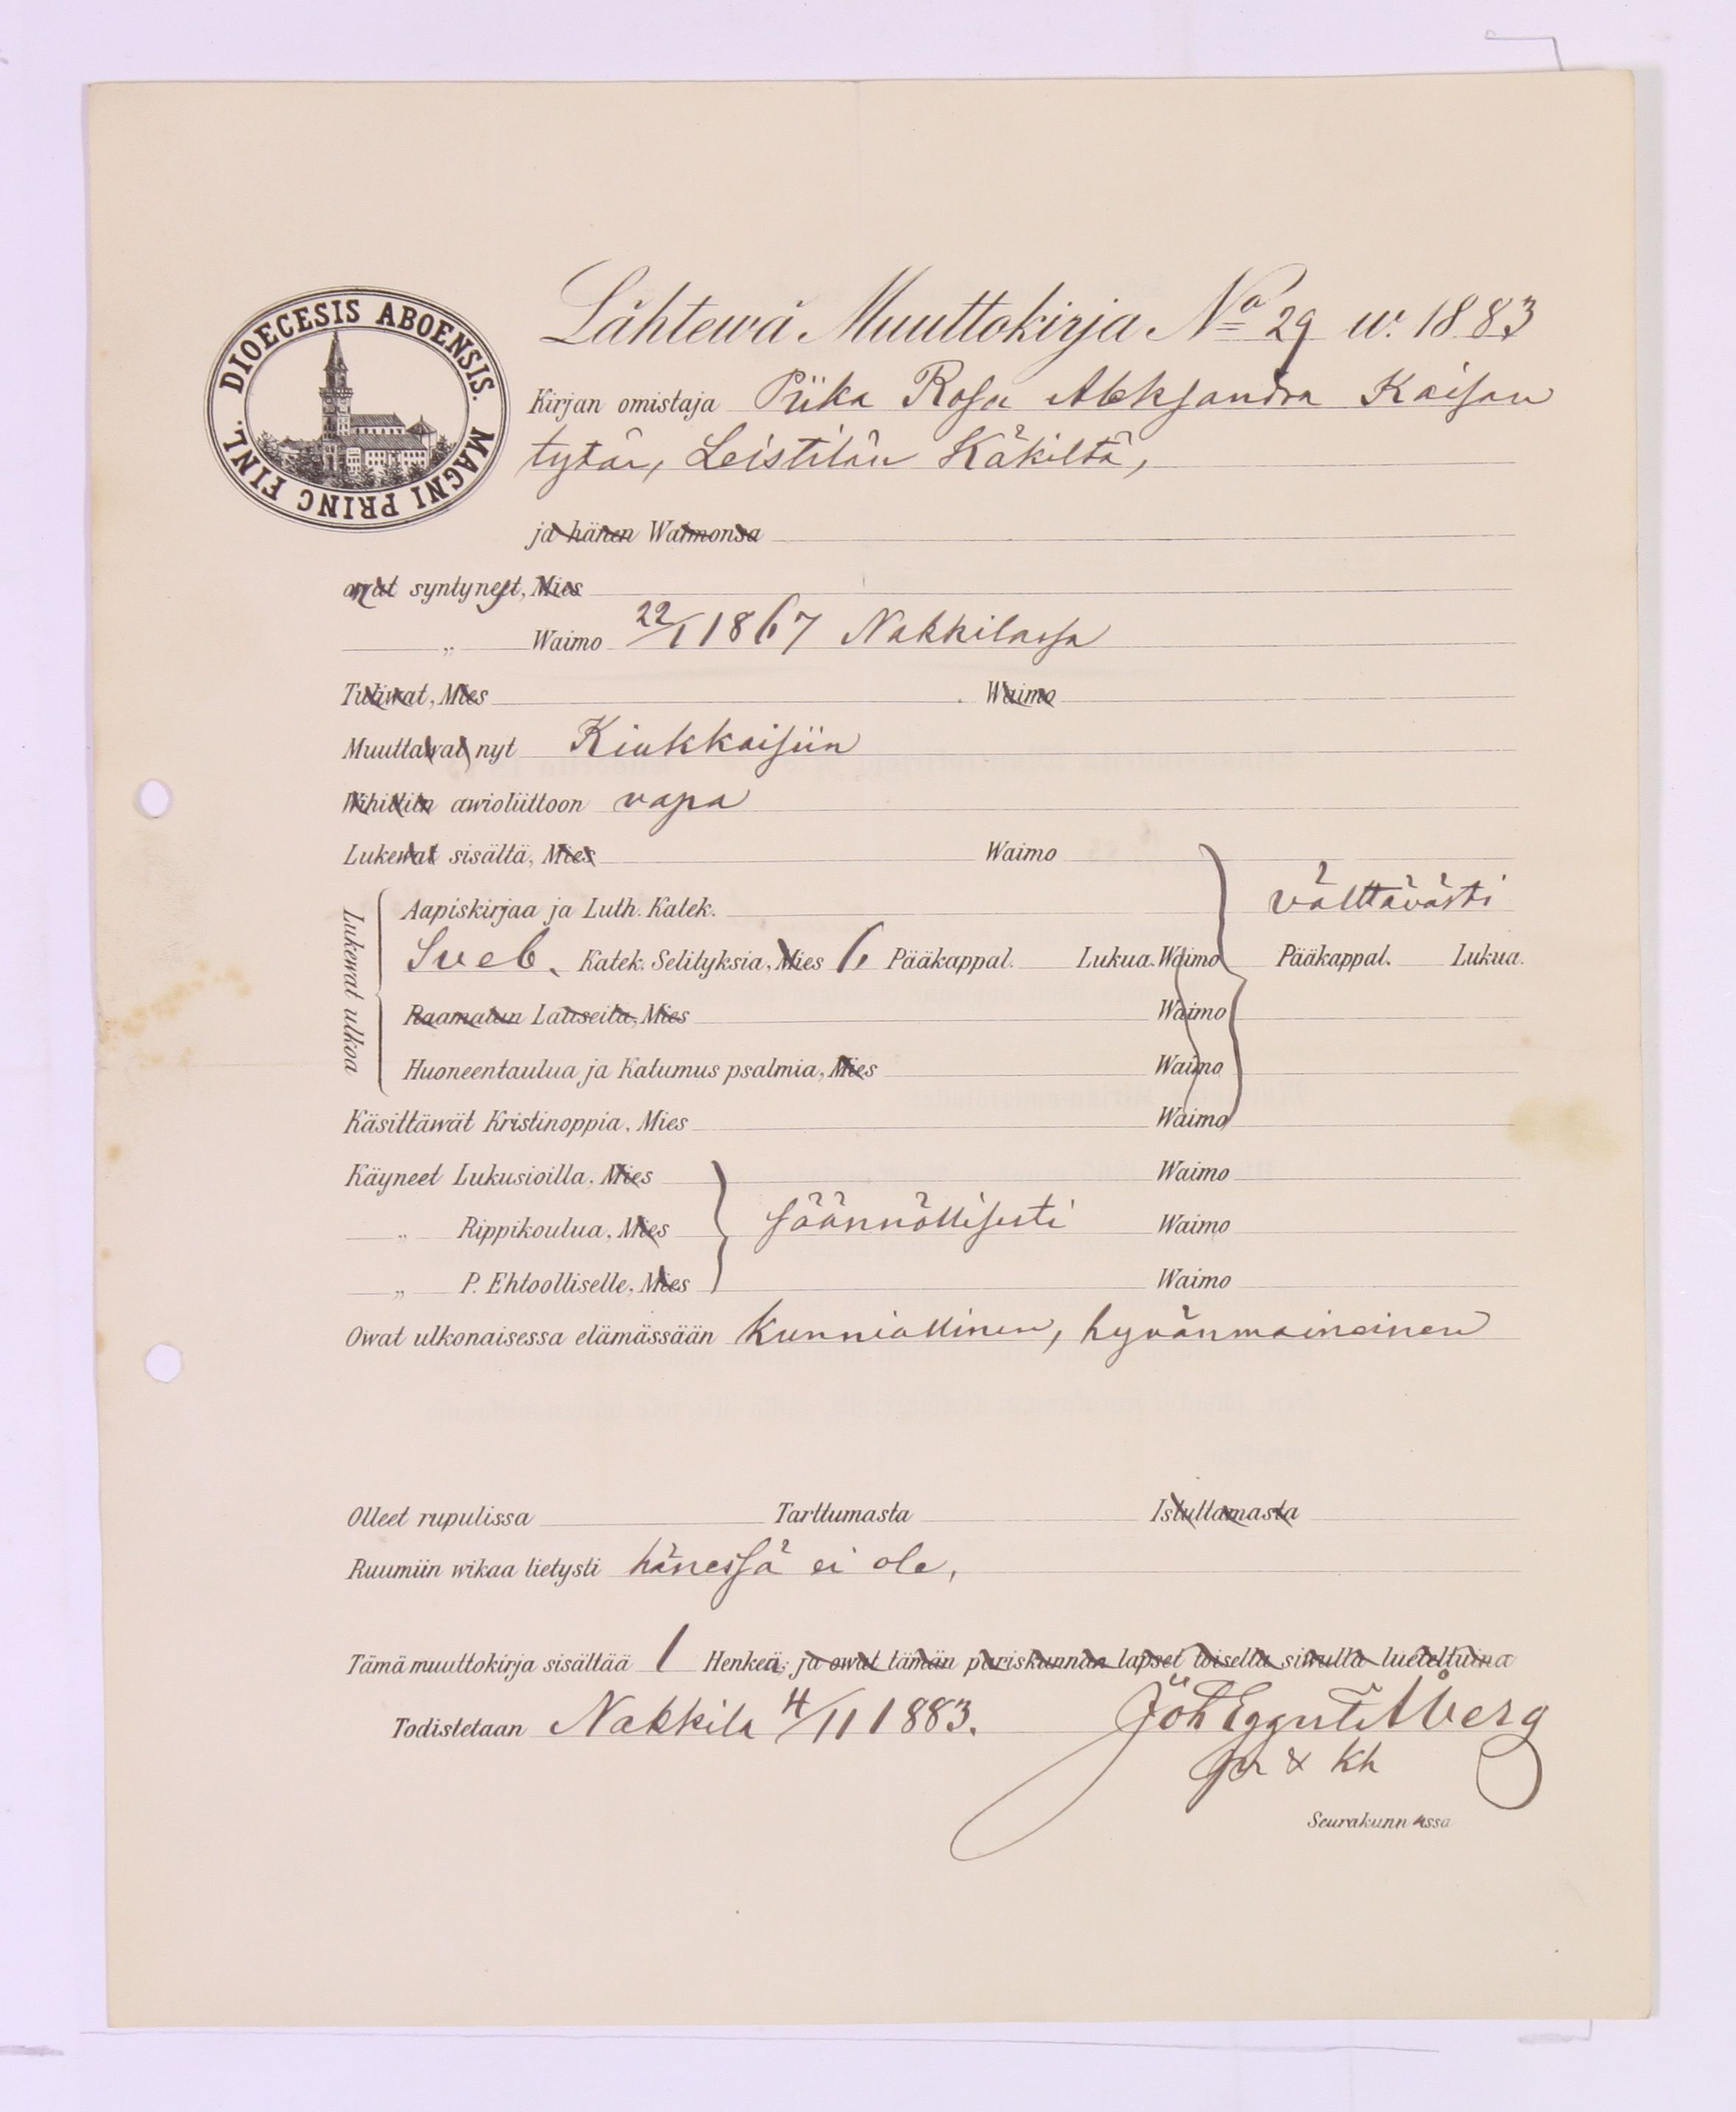 DIOECESIS ABOENSIS. MAGNI PRINC FINL.
Lähtewä Muuttokirja No 29 w. 1883
Kirjan omistaja Piika Rosa Aleksandra Kaisan
tytär, Leistilän Käkiltä,
ja hänen Waimonsa
owat syntyneet, Mies
„ Waimo 22/1 1867 Nakkilassa
Tuliwat, Mies Waimo
Muuttawat nyt Kiukkaisiin
Wihittiin awioliittoon vapa
Lukewat sisältä, Mies Waimo
Lukewat ulkoa
Aapiskirjaa ja Luth. Katek. välttävästi
Sveb. Katek. Selityksiä, Mies 6 Pääkappal. Lukua. Waimo Pääkappal. Lukua.
Raamatun Lauseita, Mies Waimo
Huoneentaulua ja Katumus psalmia, Mies Waimo
Käsittäwät Kristinoppia, Mies Waimo
Käyneet Lukusioilla, Mies Waimo
„ Rippikoulua, Mies säännöllisesti Waimo
„ P. Ehtoolliselle, Mies Waimo
Owat ulkonaisessa elämässään Kunniallinen, hyvänmaineinen
Olleet rupulissa Tarttumasta Istuttamasta
Ruumiin wikaa tietysti hänessä ei ole,
Tämä muuttokirja sisältää 1 Henkeä; ja owat tämän pariskunnan lapset toisella siwulla lueteltuina
Todistetaan Nakkila 4/11 1883. Joh Åberg
& Kh
Seurakunnassa